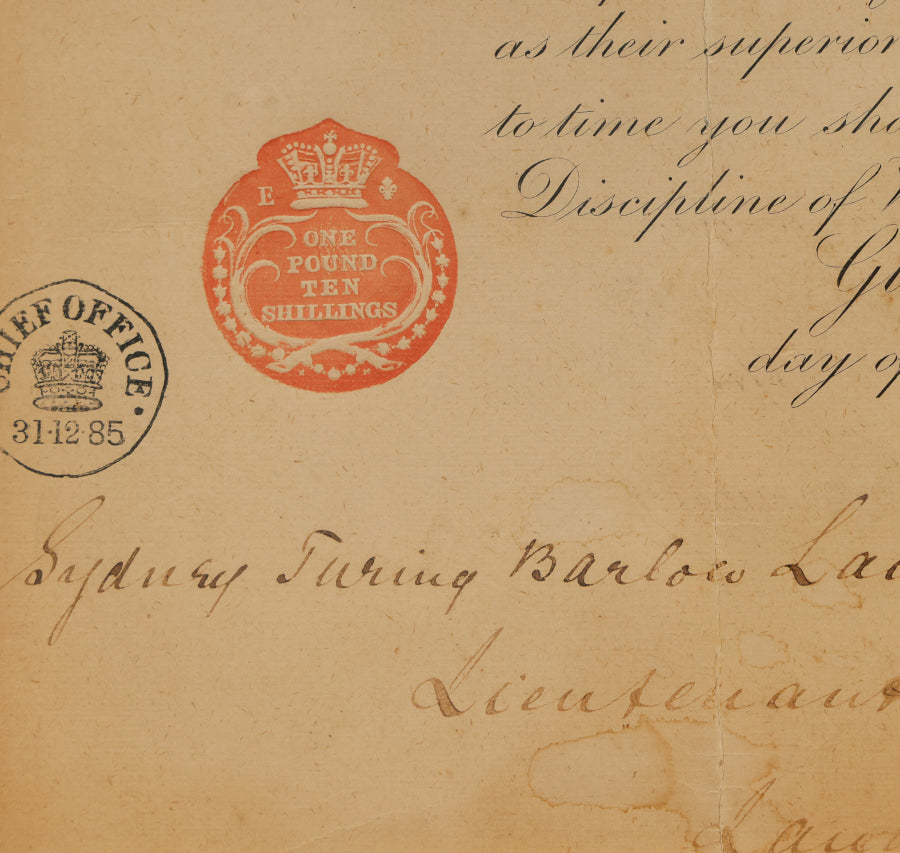 as their superior
to time you sho
Discipline of W
Gi
day of
E
ONE
POUND
TEN
SHILLINGS
CHIEF OFFICE
31·12·85
Sydney Turing Barlow La
Lieutenant
Law